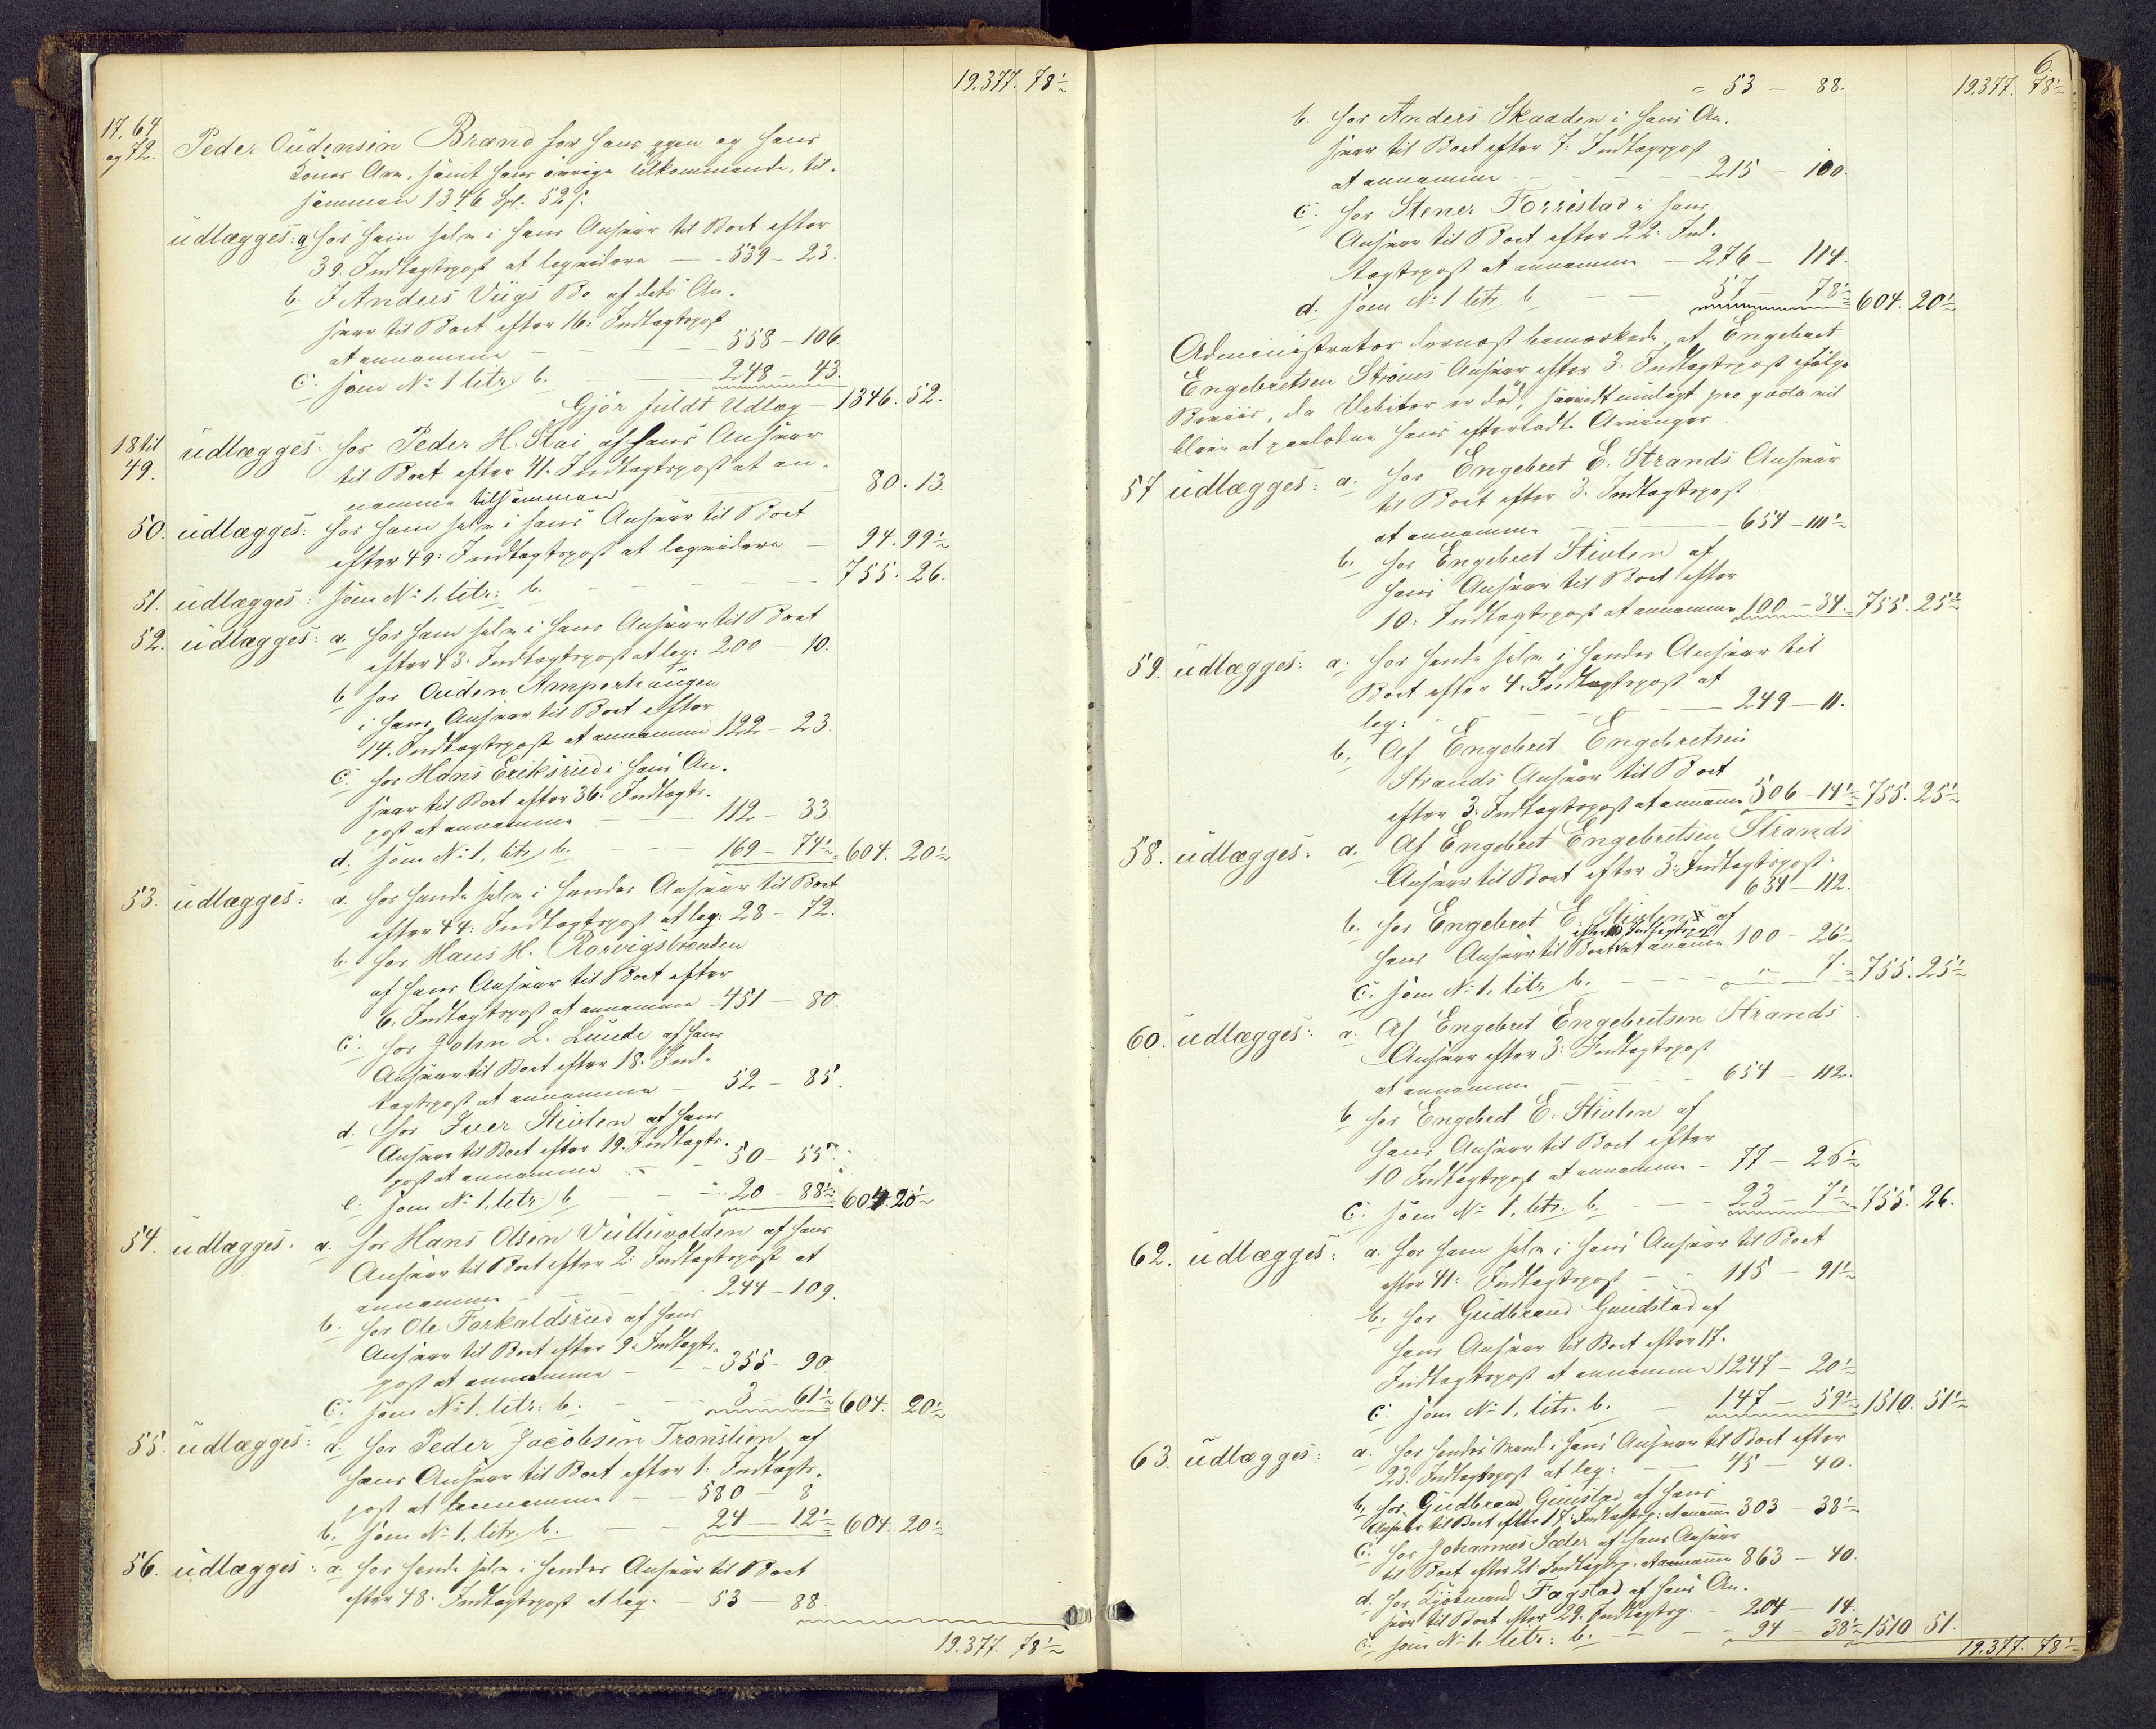 19.377. 78½
17. 64
og 72. Peder Oudensen Brænd for hans egen og hans
Kones Arv, samt hans øvrige Tilkommende, til-
sammen 1346 Spl. 52 s:
udlægges: a for ham selv i hans Ansvar til Boet efter
39. Indtægtspost at leqvidere — 539 - 23.
b. I Anders Viigs Bo af dets An-
svar til Boet efter 16: Indtægtspost
at annamme — 558 - 106.
c. som No 1 litr. b. — 248 - 43.
Gjør fuldt Udlæg — 1346. 52.
18 til
49. udlægges: hos Peder H. Stai af hans Ansvar
til Boet efter 41. Indtægtspost at an-
namme tilsammen — 80. 13.
50. udlægges: hos ham selv i hans Ansvar til Boet
efter 49: Indtægtspost at leqvidere — 94. 99½
51. udlægges: som No 1. litr: b. — 755. 26.
52. udlægges: a. hos ham selv i hans Ansvar til Boet
efter 43: Indtægtspost at leq: 200 - 10.
b hos Ouden Amperhaugen
i hans Ansvar til Boet efter
14. Indtægtspost at annamme 122 - 23.
c. hos Hans Eriksrud i hans An-
svar til Boet efter 36: Indtægts-
post at annamme — 112 - 33.
d. som No 1, litr. b. — 169 - 74½ = 604. 20½
53. udlægges: a. hos hende selv i hendes Ansvar til Boet
efter 44: Indtægtspost at leq: 28 - 72.
b. hos Hans H. Rorvigsbrænden
af hans Ansvar til Boet efter
6: Indtægtspost at annamme - 451 - 80.
c. hos John L. Lunde af hans
Ansvar til Boet efter 18: Ind-
tægtspost at annamme — 52 - 85.
d. hos Iver Stivlen af hans
Ansvar til Boet efter 19. Indtægts-
post at annamme — 50 - 55.
e. som No 1, litr: b — 20 - 88½ = 604. 20½
54. udlægges. a. hos Hans Olsen Vulluvolden af hans
Ansvar til Boet efter 2: Indtægtspost at
annamme — 244 - 109.
b. hos Ole Forkaldsrud af hans
Ansvar til Boet efter 9. Indtægts-
post at annamme — 355 - 90.
c. som No 1. litr: b. — 3 - 61½ = 604. 20½
55. udlægges: a. hos Peder Jacobsen Tronslien af
hans Ansvar til Boet efter 1: Indtægts-
post at annamme — 580 - 8
b. som No 1, litr. b. — 24 - 12½ = 604. 20½
56. udlægges: a. hos hende selv i hendes Ansvar til Boet
efter 48: Indtægtspost at leq. — 53 - 88.
19.377. 78½
6.
= 53 - 88. 19.377. 78½
b. hos Anders Skaaden i hans An-
svar til Boet efter 7: Indtægtspost
at annamme — 215 - 100.
c. hos Stener Forrestad i hans
Ansvar til Boet efter 22: Ind-
tægtspost at annamme — 276 - 114.
d. som No 1 litr b — 57 - 78½ = 604. 20½
Administrator dernæst bemærkede, at Engebret
Engebretsen Strøms Ansvar efter 3. Indtægtspost ifølge
Beviis, da Debitor er død, saavidt muligt pro qvota vil
blive at paalodne hans efterladte Arvinger.
57 udlægges: a. hos Engebret E. Strands Ansvar
til Boet efter 3. Indtægtspost
at annamme — 654 - 111½
b. hos Engebret Stivlen af
hans Ansvar til Boet efter
10: Indtægtspost at annamme 100 - 34. = 755. 25½
59. udlægges: a. hos hende selv i hendes Ansvar til
Boet efter 4. Indtægtspost at
leq: — 249 - 11.
b. Af Engebret Engebretsen
Strands Ansvar til Boet
efter 3: Indtægtspost at annamme 506 - 14½ = 755. 25½
58. udlægges: a. Af Engebret Engebretsen Strands
Ansvar til Boet efter 3: Indtægtspost:
654 - 112.
b. hos Engebret E. Stivlen af
efter 10 Indtægtspost
hans Ansvar til Boet at annamme 100 - 26½
c. som No 1. litr b. — " - 7. = 755. 25½
60. udlægges: a. Af Engebret Engebretsen Strands
Ansvar efter 3: Indtægtspost
at annamme — 654 - 112.
b hos Engebret E. Stivlen af
hans Ansvar til Boet efter
10 Indtægtspost at annamme - 77 - 26½
c. som No 1. litr. b. — 23 - 7½ = 755. 26.
62. udlægges: a. hos ham selv i hans Ansvar til Boet
efter 41: Indtægtspost — 115 - 91½
b. hos Gudbrand Guustad af
hans Ansvar til Boet efter 17.
Indtægtspost at annamme 1247 - 20½
c. som No 1, litr. b. — 147 - 59½ = 1510. 51½
63. udlægges: a. hos hendes Mand i hans Ansvar til Boet efter
23: Indtægtspost at leq: — 45 - 40.
b. hos Gudbrand Guustad af hans
Ansvar til Boet efter 17: Indtægtsp: at annamme 303 - 38½
c. hos Johannes Sæter af hans Ansvar
til Boet efter 21: Indtægtsp: at annamme 863 - 40.
d. hos Kjøbmand Fagstad af hans An-
svar til Boet efter 29. Indtægtsp. — 204 - 14.
e. som No 1. litr: b. — 94 - 38½ = 1510 51.
19.377. 78½